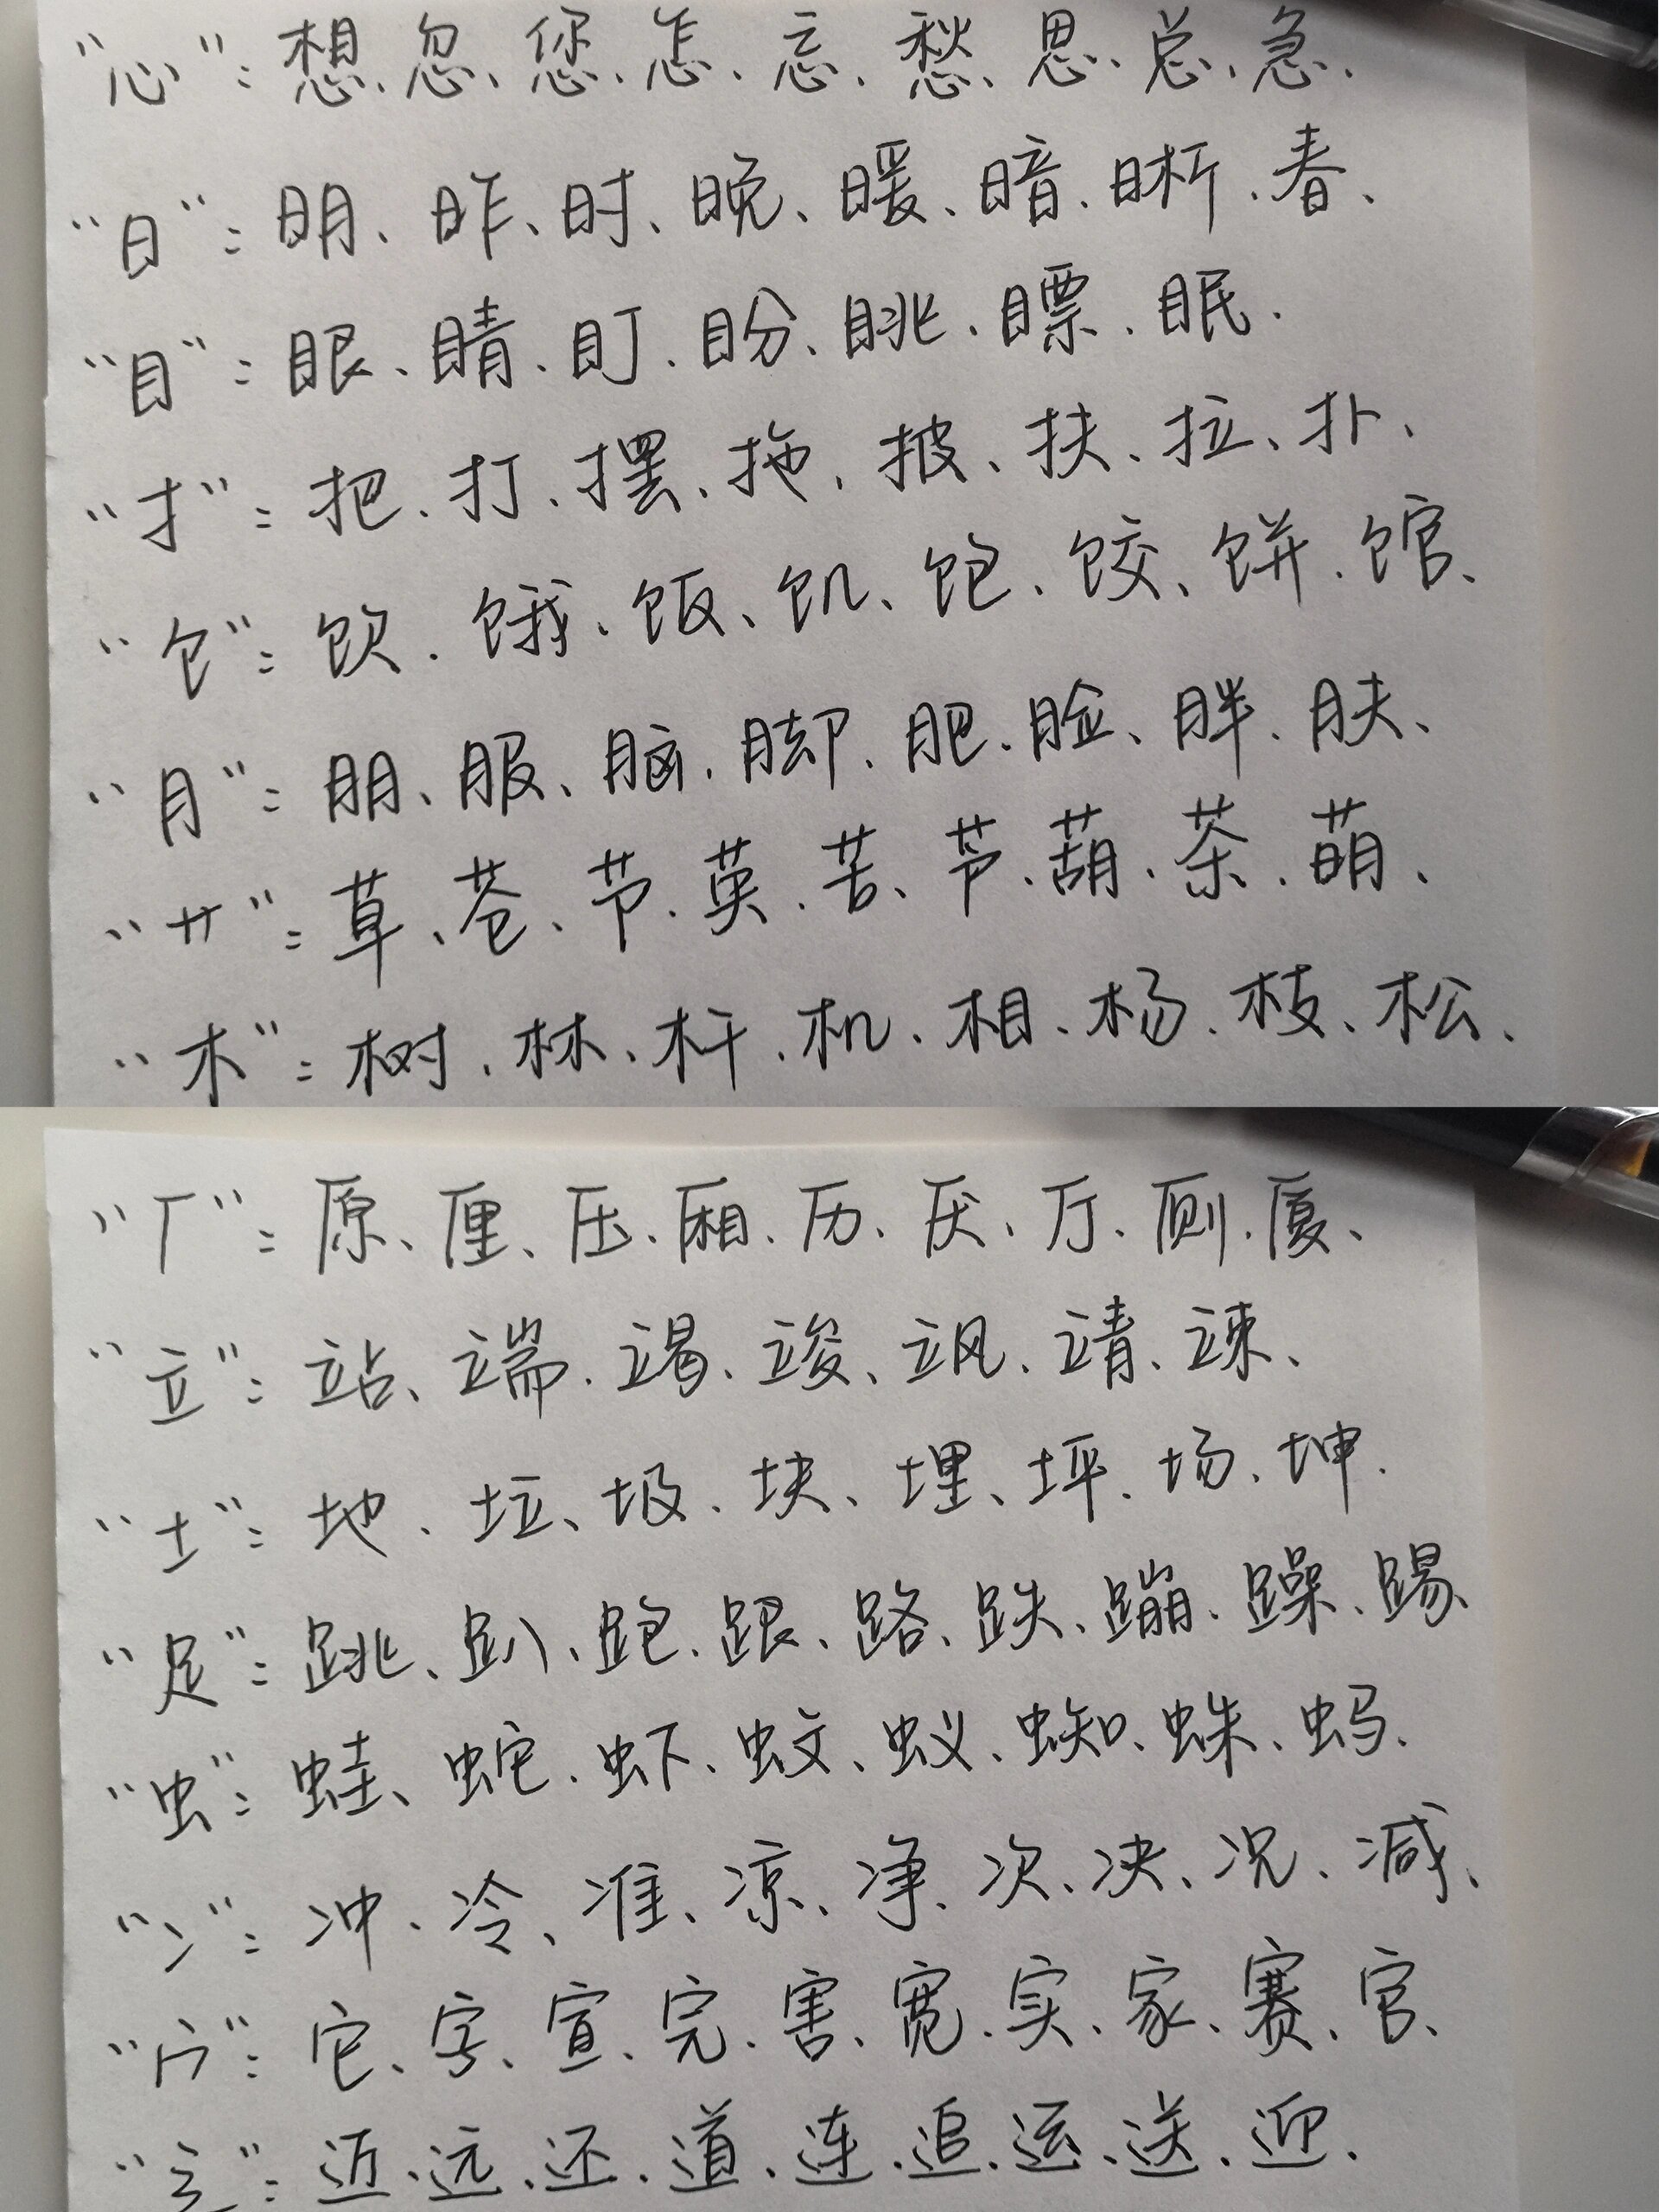 “心”：想、忽、您、怎、忘、愁、思、总、急、
“日”：明、昨、时、晚、暖、暗、晰、春、
“目”：眼、睛、盯、盼、眺、瞟、眠、
“扌”：把、打、摆、拖、披、扶、拉、扑、
“饣”：饮、饿、饭、饥、饱、饺、饼、馆、
“月”：朋、服、脑、脚、肥、脸、胖、肤、
“艹”：草、苍、节、英、苦、芦、葫、茶、萌、
“木”：树、林、杆、机、相、杨、枝、松、
“厂”：原、厘、压、厢、历、厌、厅、厕、厦、
“立”：站、端、竭、竣、飒、靖、竦、
“土”：地、垃、圾、块、埋、坪、场、坤、
“足”：跳、趴、跑、跟、路、跌、蹦、躁、踢、
“虫”：蛙、蛇、虾、蚊、蚁、蜘、蛛、蚂、
“冫”：冲、冷、准、凉、净、次、决、况、减、
“宀”：它、字、宣、完、害、宽、实、家、赛、官、
“辶”：近、远、还、道、连、追、运、送、迎、